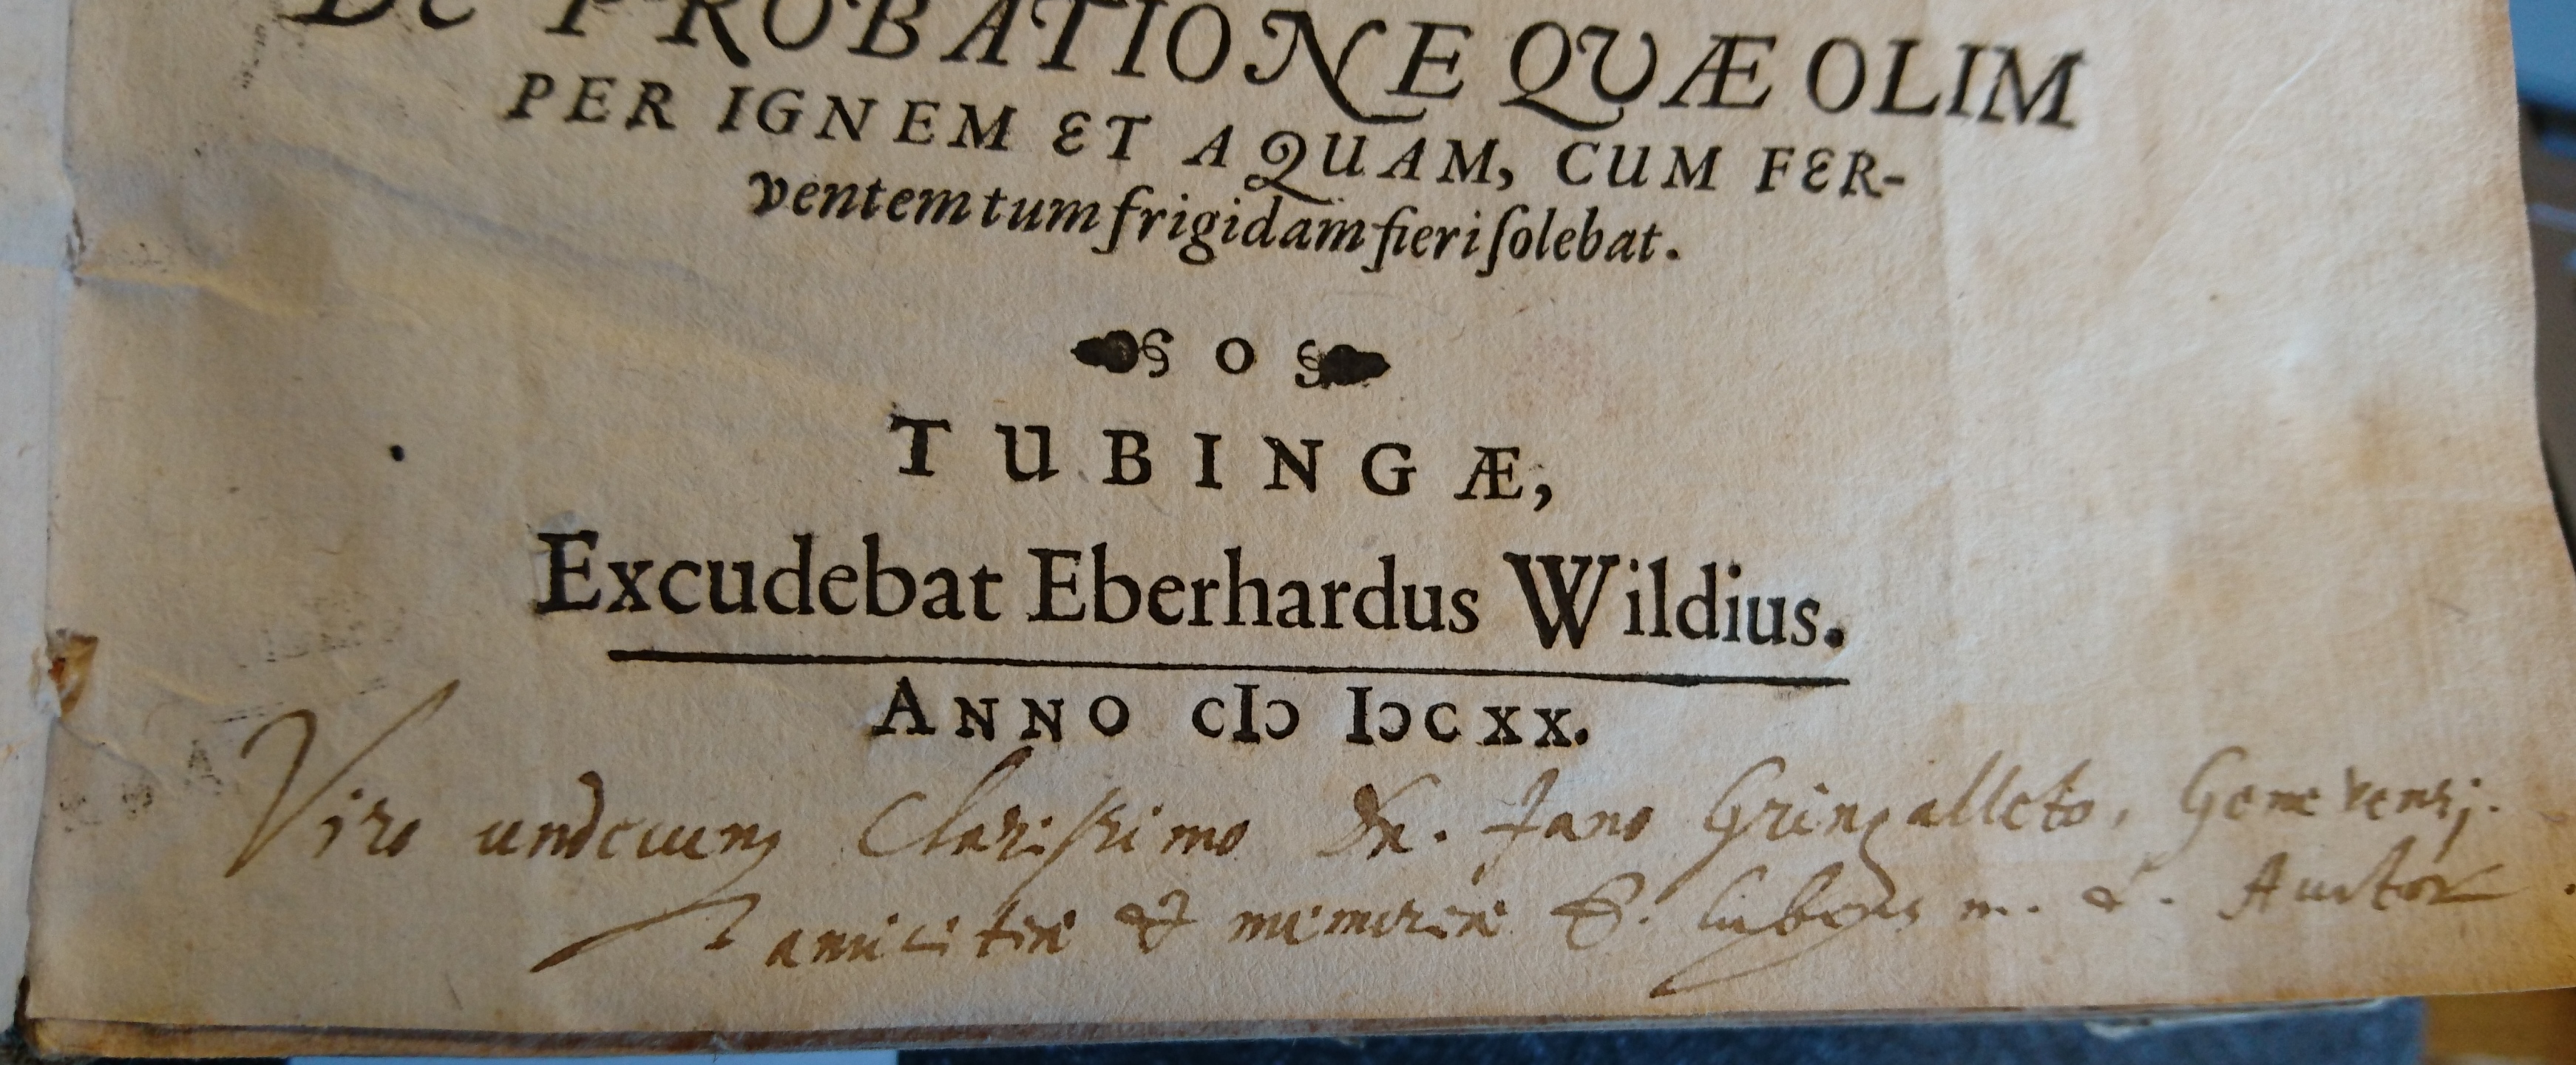 De PROBATIONE QVÆ OLIM
PER IGNEM ET AQUAM, CUM FER-
ventem tum frigidam fieri ſolebat.
O
TUBINGÆ,
Excudebat Eberhardus Wildius.
ANNO CIↃ IↃCXX.
Viro undcunq Clarissimo Dn. Jano Gringalleto, Genevensi.
amicitiæ & memoriæ lubens m. Auctor